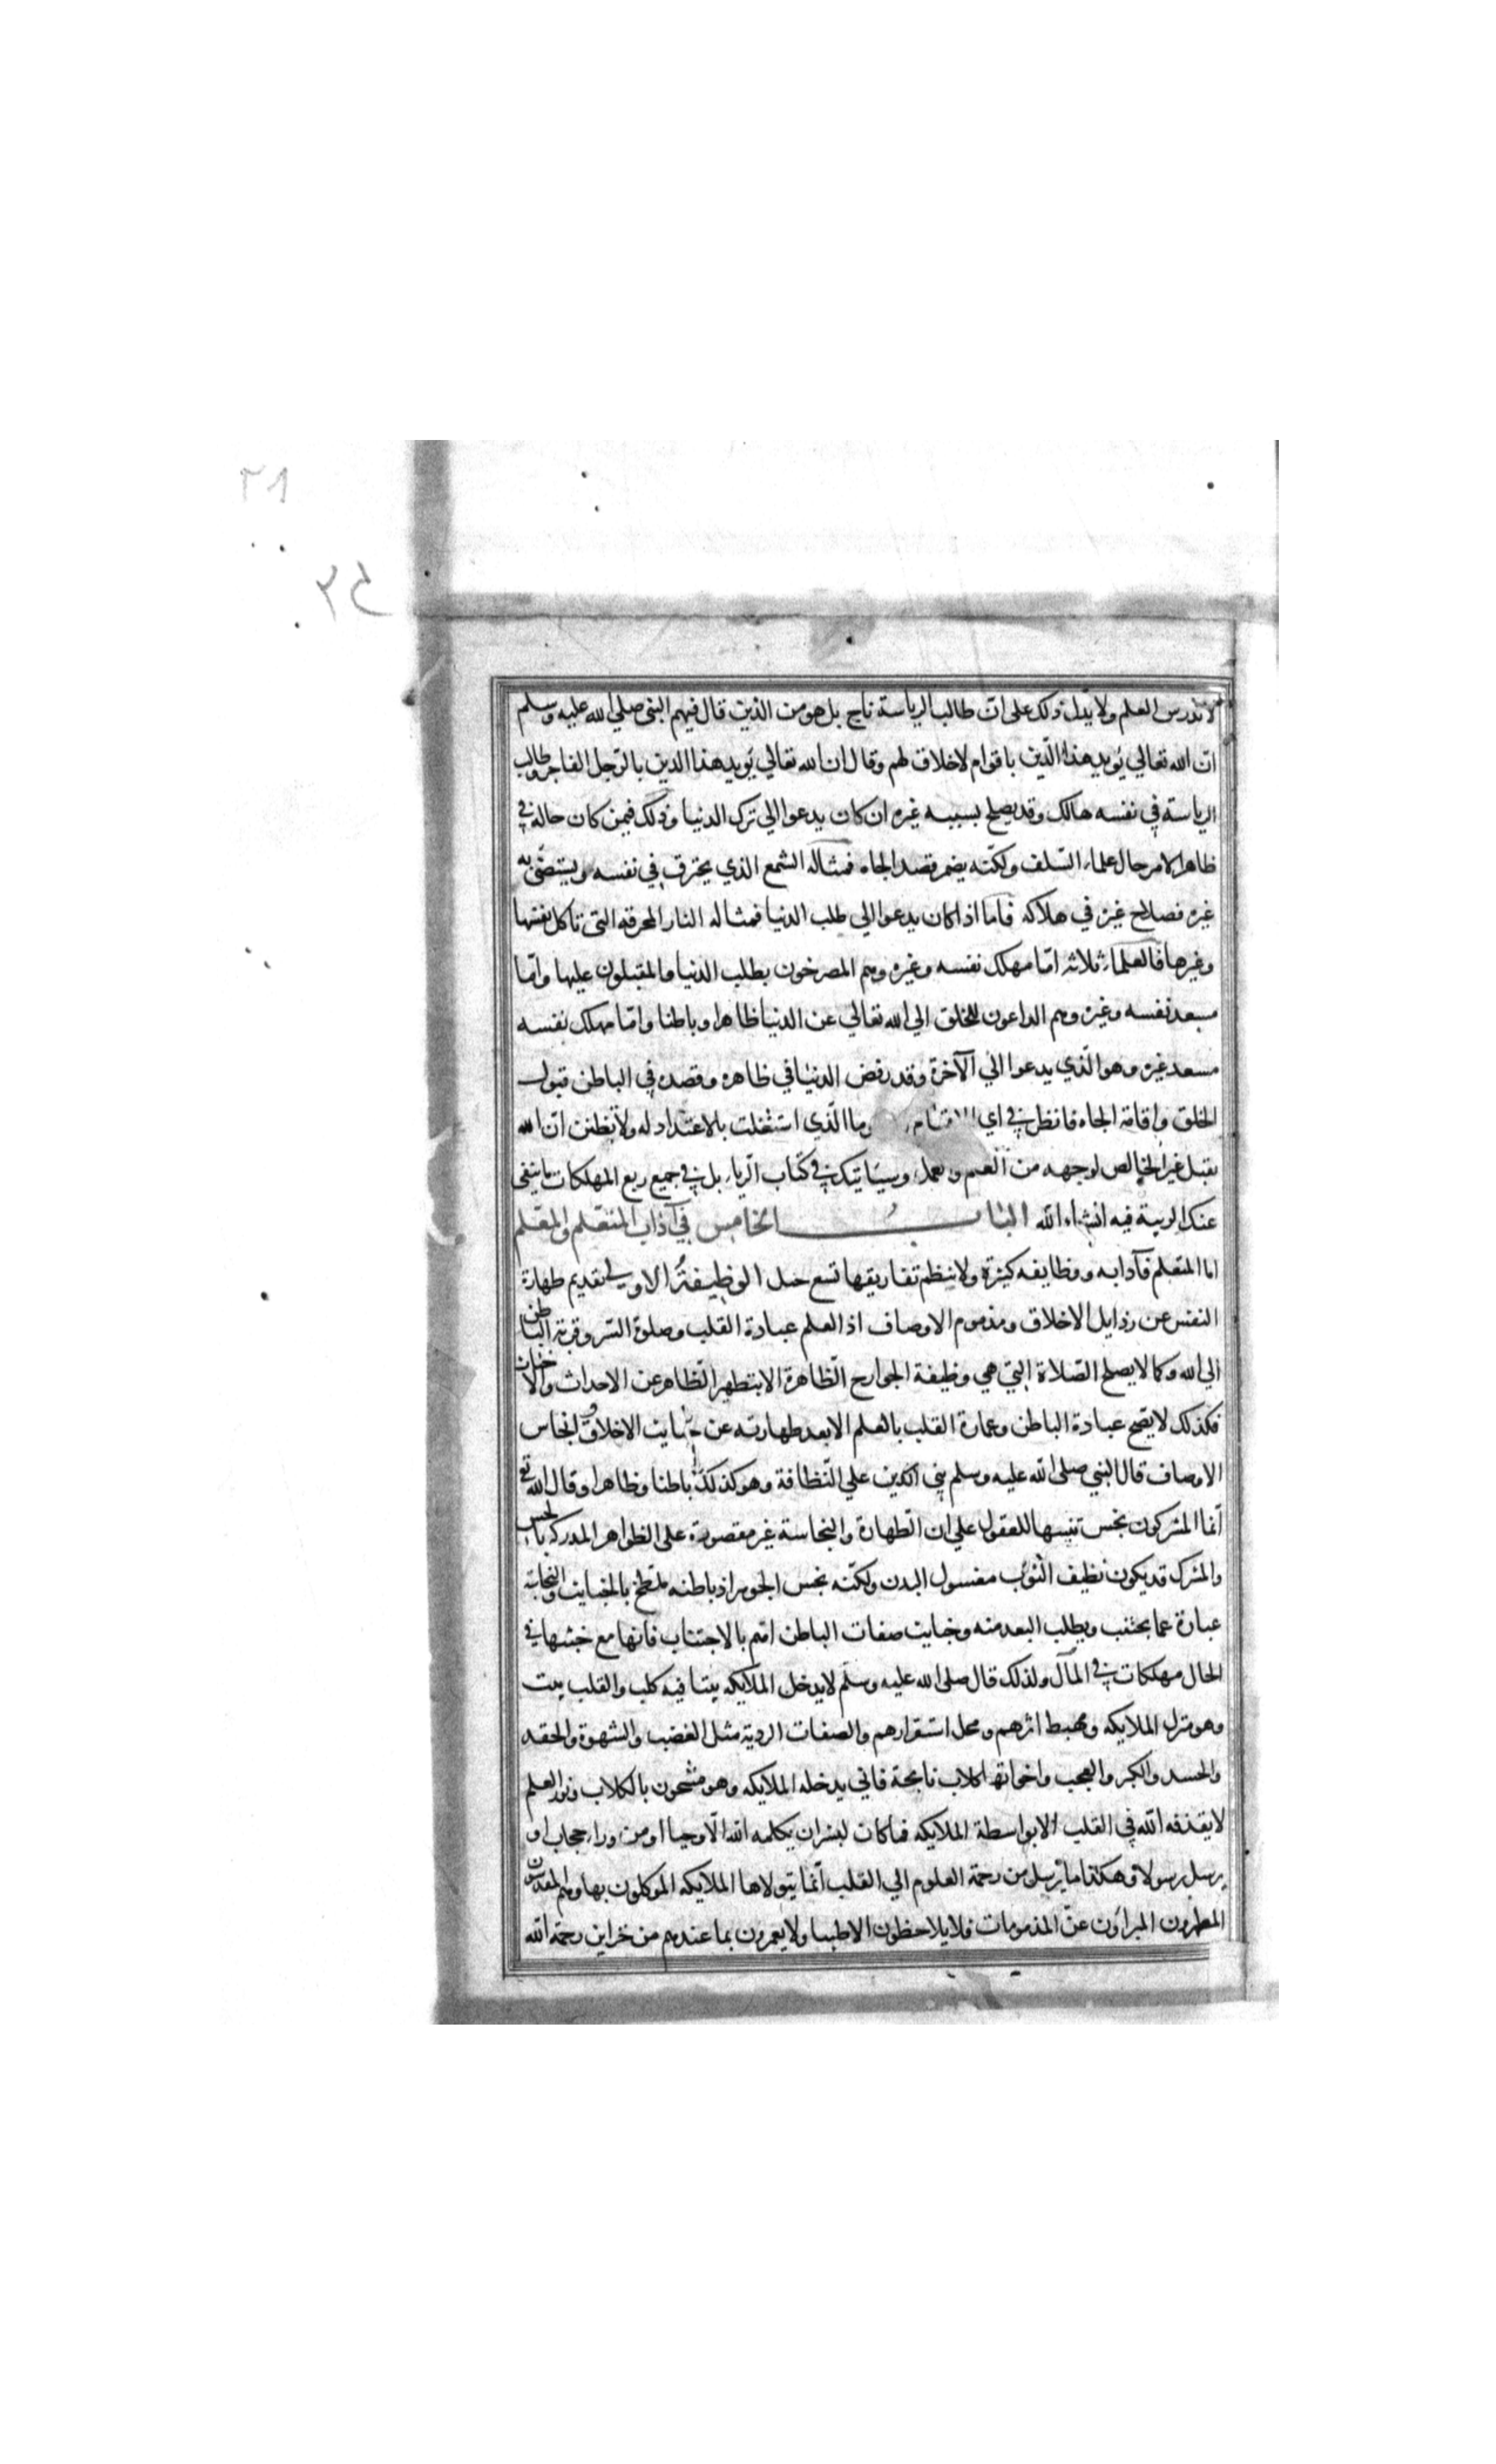 لاندرس العلم ولا يدل ذلك على ان طالب الرياسة ناج بل هو من الذين قال فيهم النبى صلي الله عليه وسلم
ان الله تعالي يؤيد هذا الدين باقوام لاخلاق لهم وقال ان الله تعالي يؤيد هذا الدين بالرجل الفاجر وطالب
الرياسة في نفسه هالك وقد يصلح بسببه غيره ان كان يدعوا الي ترك الدنيا وذلك فيمن كان حاله في
ظاهر الامر حال علماء السلف ولكنه يضمر قصد الجاه فمثاله الشمع الذي يحترق في نفسه ويستضئ به
غيره فصلاح غيره في هلاكه فاما اذا كان يدعوا الي طلب الدنيا فمثاله النار المحرقة التى تاكل نفسها
وغيرها فالعلماء ثلاثه اما مهلك نفسه وغيره وهم المصرخون بطلب الدنيا والمقبلون عليها واما
مسعد نفسه وغيره وهم الداعون للخلق الي الله تعالي عن الدنيا ظاهرا وباطنا واما مهلك نفسه
مسعد غيره وهو الذي يدعوا الي الآخرة وقد رفض الدنيا في ظاهره وقصده في الباطن قبول
الخلق واقامة الجاه فانظر في اي الاقسام وما الذي اشتغلت بالاعتداد له ولا تظنن ان الله
يقبل غير الخالص لوجهه من العلم والعمل وسياتيك في كتاب الرياء بل في جميع ربع المهلكات ما ينفى
عنك الريبة فيه انشاء الله الباب الخامس في آداب المتعلم والمعلم
اما المتعلم فآدابه ووظايفه كثيرة ولا ينظم تفاريقها تسع جمل الوظيفة الاولي تقديم طهارة
النفس عن رذايل الاخلاق ومذموم الاوصاف اذ العلم عبادة القلب وصلوة السر وقربة الباطن
الي الله وكما لا يصلح الصلاة التي هي وظيفة الجوارح الظاهرة الا بتطهير الظاهر عن الاحداث والاخباث
فكذلك لا يصح عبادة الباطن وعمارة القلب بالعلم الا بعد طهارته عن خبايث الاخلاق وانجاس
الاوصاف قال النبي صلى الله عليه وسلم بني الدين علي النظافة وهو كذلك باطنا وظاهرا وقال الله تع
انما المشركون نجس تنبيها للعقول علي ان الطهارة والنجاسة غير مقصورة على الظواهر المدركه بالحس
والمشرك قد يكون نظيف الثوب مغسول البدن ولكنه نجس الجوهر اذ باطنه ملطخ بالخبايث والنجاسة
عبارة عما يجتنب ويطلب البعد منه وخبايث صفات الباطن اهم بالاجتناب فانها مع خبثها في
الحال مهلكات في المآل ولذلك قال صلى الله عليه وسلم لا يدخل الملايكه بيتا فيه كلب والقلب بيت
وهو منزل الملايكه ومهبط اثرهم ومحل استقرارهم والصفات الردية مثل الغضب والشهوة والحقد
والحسد والكبر والعجب واخواتها كلاب نابحة فاني يدخله الملايكه وهو مشحون بالكلاب ونور العلم
لا يقذفه الله في القلب الا بواسطة الملايكه فما كان لبشر ان يكلمه الله الا وحيا او من وراء حجاب او
يرسل رسولا وهكذا ما يرسل من رحمة العلوم الي القلب انما يتولاها الملايكه الموكلون بها وهم المقدسون
المطهرون المبراؤن عن المذمومات فلا يلاحظون الا طيبا ولا يعمرون بما عندهم من خزاين رحمة الله